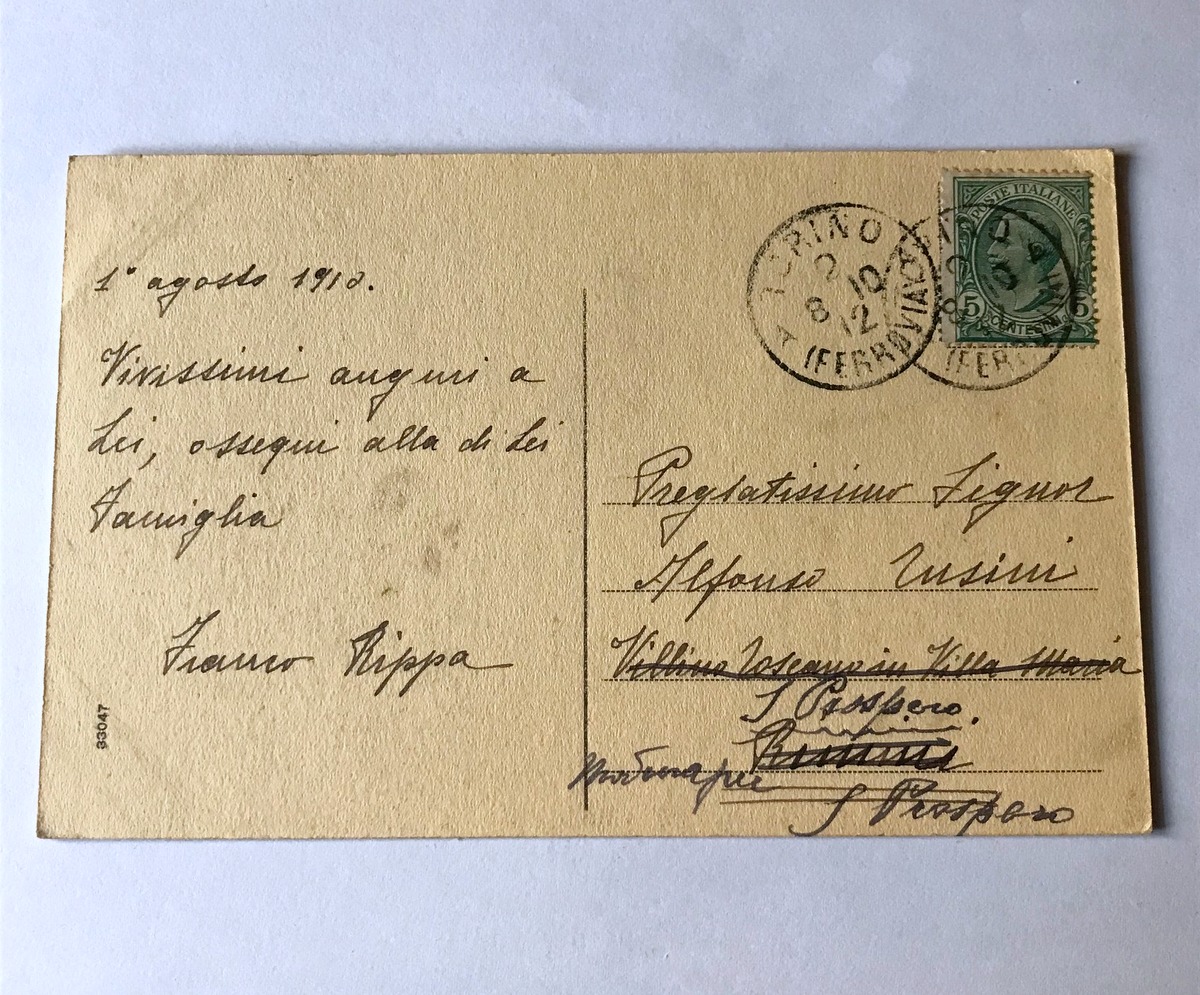 1° agosto 1910.
Vivissimi auguri a
Lei, ossequi alla di Lei
Famiglia
Franco Rippa
93047
TORINO
2
8 10
12
(FERROVIA)
POSTE ITALIANE
5 5
CENTESIMI
Pregiatissimo Signor
Alfonso Tusini
Villino Toscano in Villa Maria
S Prospero
Rimini
Modena per
S Prospero